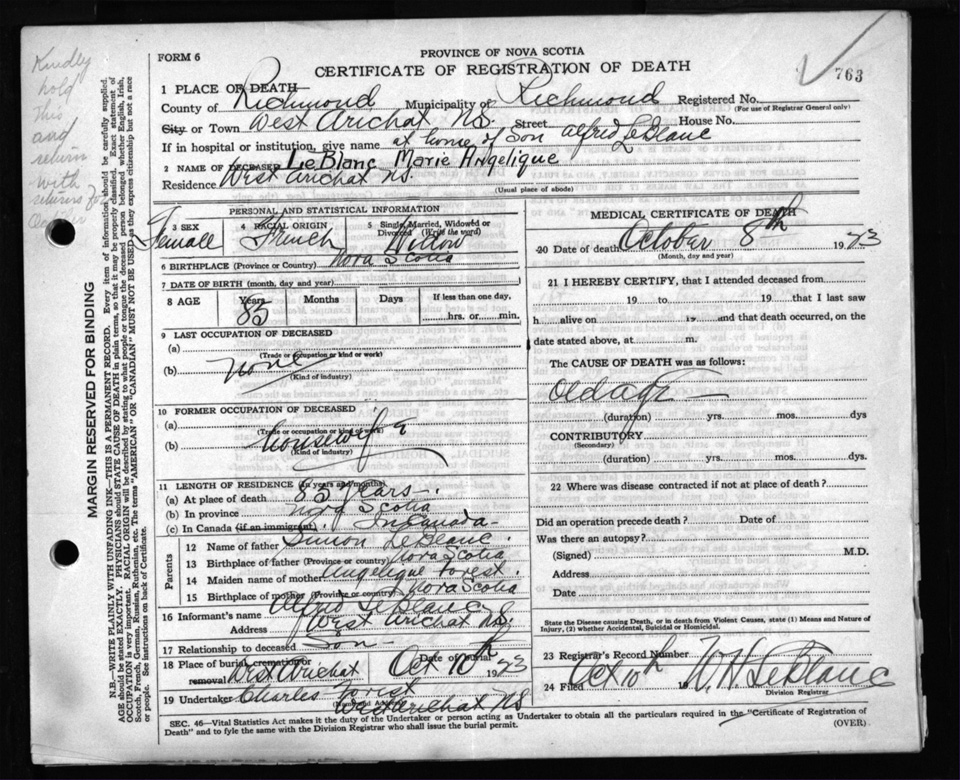 Kindly
hold
this
and
return
with
returns for
October
FORM 6
PROVINCE OF NOVA SCOTIA
CERTIFICATE OF REGISTRATION OF DEATH
763
1 PLACE OF DEATH
County of Richmond Municipality of Richmond Registered No.
(For use of Registrar General only)
City or Town West Arichat N.S. Street House No.
If in hospital or institution, give name at home of Son Alfred LeBlanc
2 NAME OF DECEASED LeBlanc Marie Angelique
Residence West Arichat N.S.
(Usual place of abode)
PERSONAL AND STATISTICAL INFORMATION
3 SEX 4 RACIAL ORIGIN 5 Single, Married, Widowed or Divorced (Write the word)
Female French Widow
6 BIRTHPLACE (Province or Country) Nova Scotia
7 DATE OF BIRTH (month, day and year)
8 AGE Years Months Days If less than one day,
85 hrs. or min.
9 LAST OCCUPATION OF DECEASED
(a)
(Trade or occupation or kind or work)
(b) none
(Kind of industry)
10 FORMER OCCUPATION OF DECEASED
(a)
(Trade or occupation or kind of work)
(b) housewife
(Kind of industry)
11 LENGTH OF RESIDENCE (in years and months)
(a) At place of death 85 years
(b) In province Nova Scotia
(c) In Canada (if an immigrant) In Canada
Parents
12 Name of father Simon LeBlanc
13 Birthplace of father (Province or country) Nova Scotia
14 Maiden name of mother Angelique Forest
15 Birthplace of mother (Province or country) Nova Scotia
16 Informant's name Alfred LeBlanc
Address West Arichat N.S.
17 Relationship to deceased Son
18 Place of burial, cremation or removal West Arichat Date of burial Oct 10th 1973
19 Undertaker Charles Forest
West Arichat N.S
MEDICAL CERTIFICATE OF DEATH
20 Date of death October 8th 1973
(Month, day and year)
21 I HEREBY CERTIFY, that I attended deceased from
19 to 19 that I last saw
h alive on 19 and that death occurred, on the
date stated above, at m.
The CAUSE OF DEATH was as follows:
Old age
(duration) yrs. mos. dys
CONTRIBUTORY
(Secondary)
(duration) yrs. mos. dys.
22 Where was disease contracted if not at place of death?
Did an operation precede death? Date of
Was there an autopsy?
(Signed) M.D.
Address
Date
State the Disease causing Death, or in Deaths from Violent Causes, state (1) Means and Nature of Injury, (2) whether Accidental, Suicidal or Homicidal.
23 Registrar's Record Number
24 Filed Oct 10th 19 W. H. LeBlanc
Division Registrar
SEC. 46—Vital Statistics Act makes it the duty of the Undertaker or person acting as Undertaker to obtain all the particulars required in the "Certificate of Registration of
Death" and to fyle the same with the Division Registrar who shall issue the burial permit.
(OVER)
MARGIN RESERVED FOR BINDING
N.B.—WRITE PLAINLY WITH UNFADING INK—THIS IS A PERMANENT RECORD. Every item of information should be carefully supplied.
AGE should be stated EXACTLY. PHYSICIANS should STATE CAUSE OF DEATH in plain terms, so that it may be properly classified. Exact statement of
OCCUPATION is very important. RACIAL ORIGIN will be described by stating to what people or tongue the deceased person belonged whether English, Irish,
Scotch, French, German, Russian, Ruthenian, etc. The terms "AMERICAN" OR "CANADIAN" MUST NOT BE USED as they express citizenship but not a race
or people. See instructions on back of Certificate.